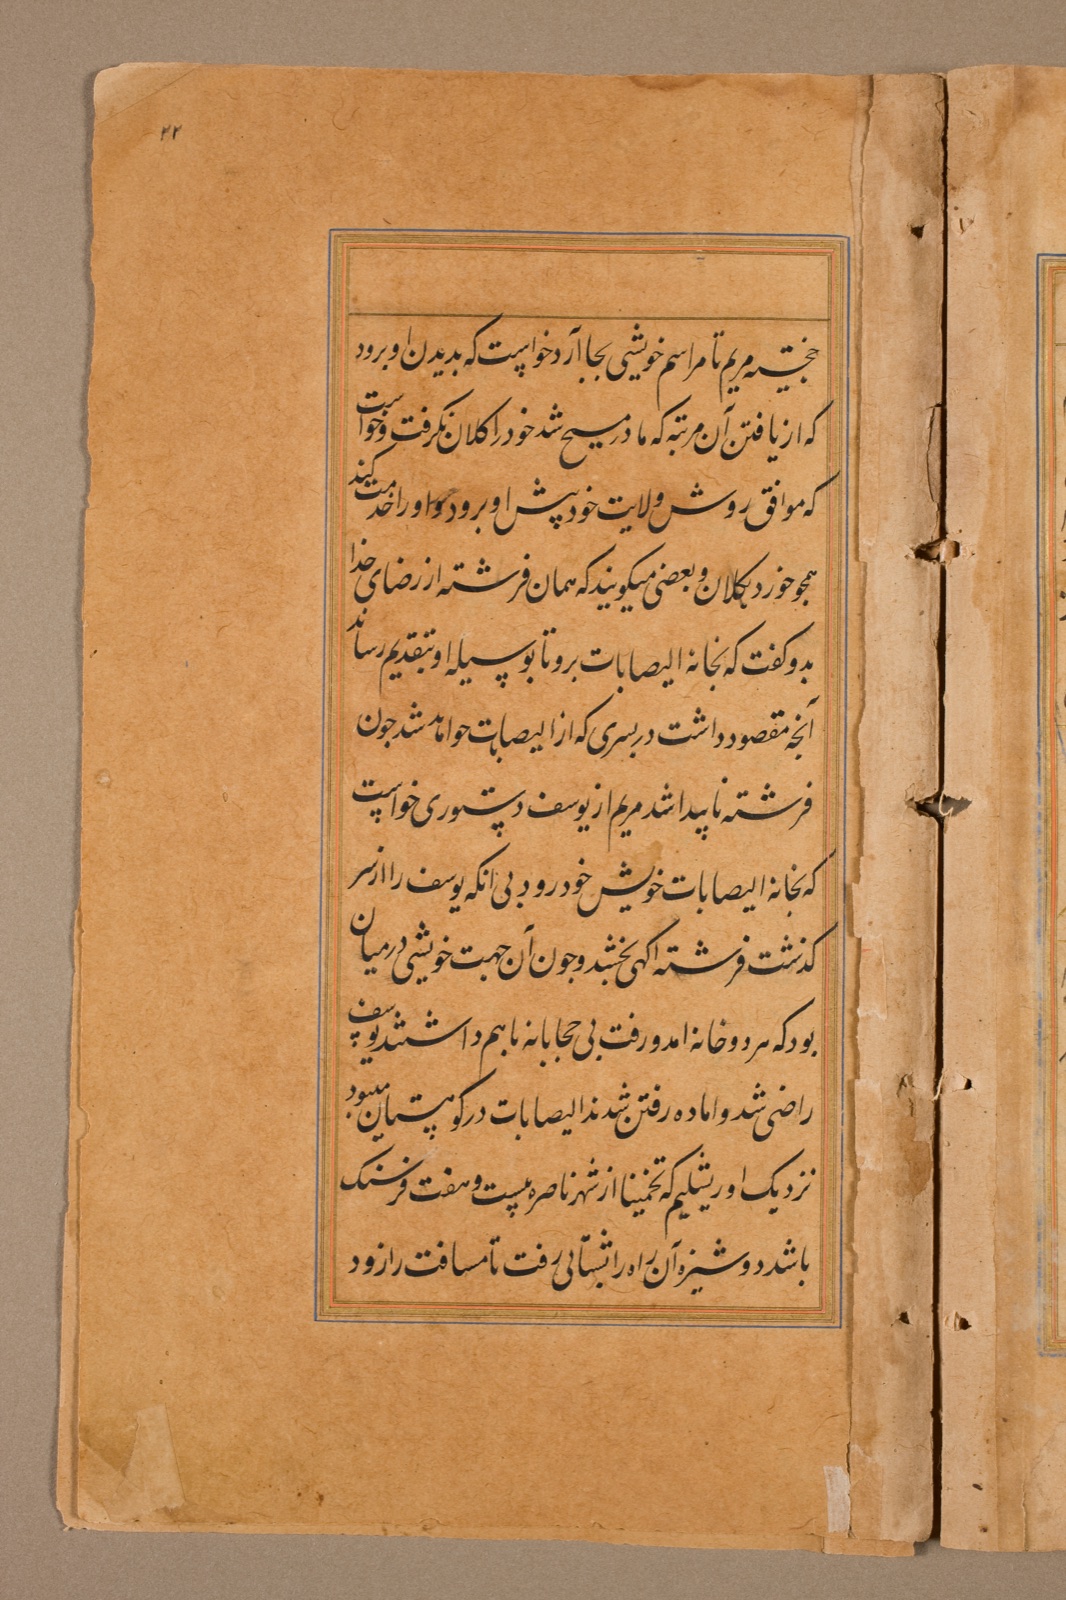 ۲۲
خجسته مریم تا مراسم خویشی بجا آرد خواست که بدیدن او برود
که از یافتن آن مرتبه که مادر مسیح شد خود را کلان نکرفت و خواست
که موافق روش ولایت خود پیش او برود و او را خدمت کند
همجو خورد بکلان و بعضی میکویند که همان فرشته از رضای خدا
بدو کفت که بخانه الیصابات برو تا بوسیله او بتقدیم رساند
آنجه مقصود داشت در بسری که از الیصابات خواهد شد جون
فرشته ناپیدا شد مریم از یوسف دستوری خواست
که بخانه الیصابات خویش خود رود بی انکه یوسف را از سر
کذشت فرشته اکهی بخشد و جون آن جهت خویشی درمیان
بود که هر دو خانه امد و رفت بی حجابانه باهم داشتند یوسف
راضی شد و اماده رفتن شدند الیصابات در کوهستان میبود
نزدیک اوریشلیم که تخمینا از شهر ناصره بیست و هفت فرسنک
باشد دوشیزه آن راه را بشتابی رفت تا مسافت را زود